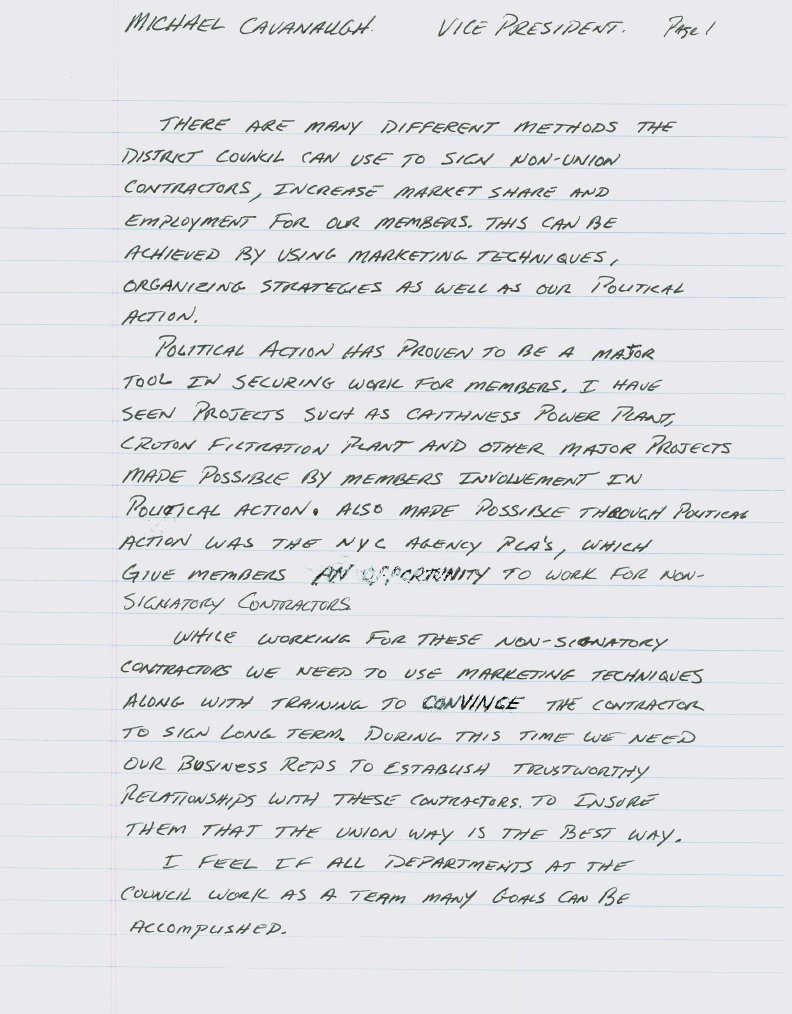 MICHAEL CAVANAUGH. VICE PRESIDENT. PAGE 1
THERE ARE MANY DIFFERENT METHODS THE
DISTRICT COUNCIL CAN USE TO SIGN NON-UNION
CONTRACTORS, INCREASE MARKET SHARE AND
EMPLOYMENT FOR OUR MEMBERS. THIS CAN BE
ACHIEVED BY USING MARKETING TECHNIQUES,
ORGANIZING STRATEGIES AS WELL AS OUR POLITICAL
ACTION.
POLITICAL ACTION HAS PROVEN TO BE A MAJOR
TOOL IN SECURING WORK FOR MEMBERS. I HAVE
SEEN PROJECTS SUCH AS CAITHNESS POWER PLANT,
CROTON FILTRATION PLANT AND OTHER MAJOR PROJECTS
MADE POSSIBLE BY MEMBERS INVOLVEMENT IN
POLITICAL ACTION. ALSO MADE POSSIBLE THROUGH POLITICAL
ACTION WAS THE NYC AGENCY PLA'S, WHICH
GIVE MEMBERS AN OPPORTUNITY TO WORK FOR NON-
SIGNATORY CONTRACTORS
WHILE WORKING FOR THESE NON-SIGNATORY
CONTRACTORS WE NEED TO USE MARKETING TECHNIQUES
ALONG WITH TRAINING TO CONVINCE THE CONTRACTOR
TO SIGN LONG TERM. DURING THIS TIME WE NEED
OUR BUSINESS REPS TO ESTABLISH TRUSTWORTHY
RELATIONSHIPS WITH THESE CONTRACTORS. TO INSURE
THEM THAT THE UNION WAY IS THE BEST WAY.
I FEEL IF ALL DEPARTMENTS AT THE
COUNCIL WORK AS A TEAM MANY GOALS CAN BE
ACCOMPLISHED.